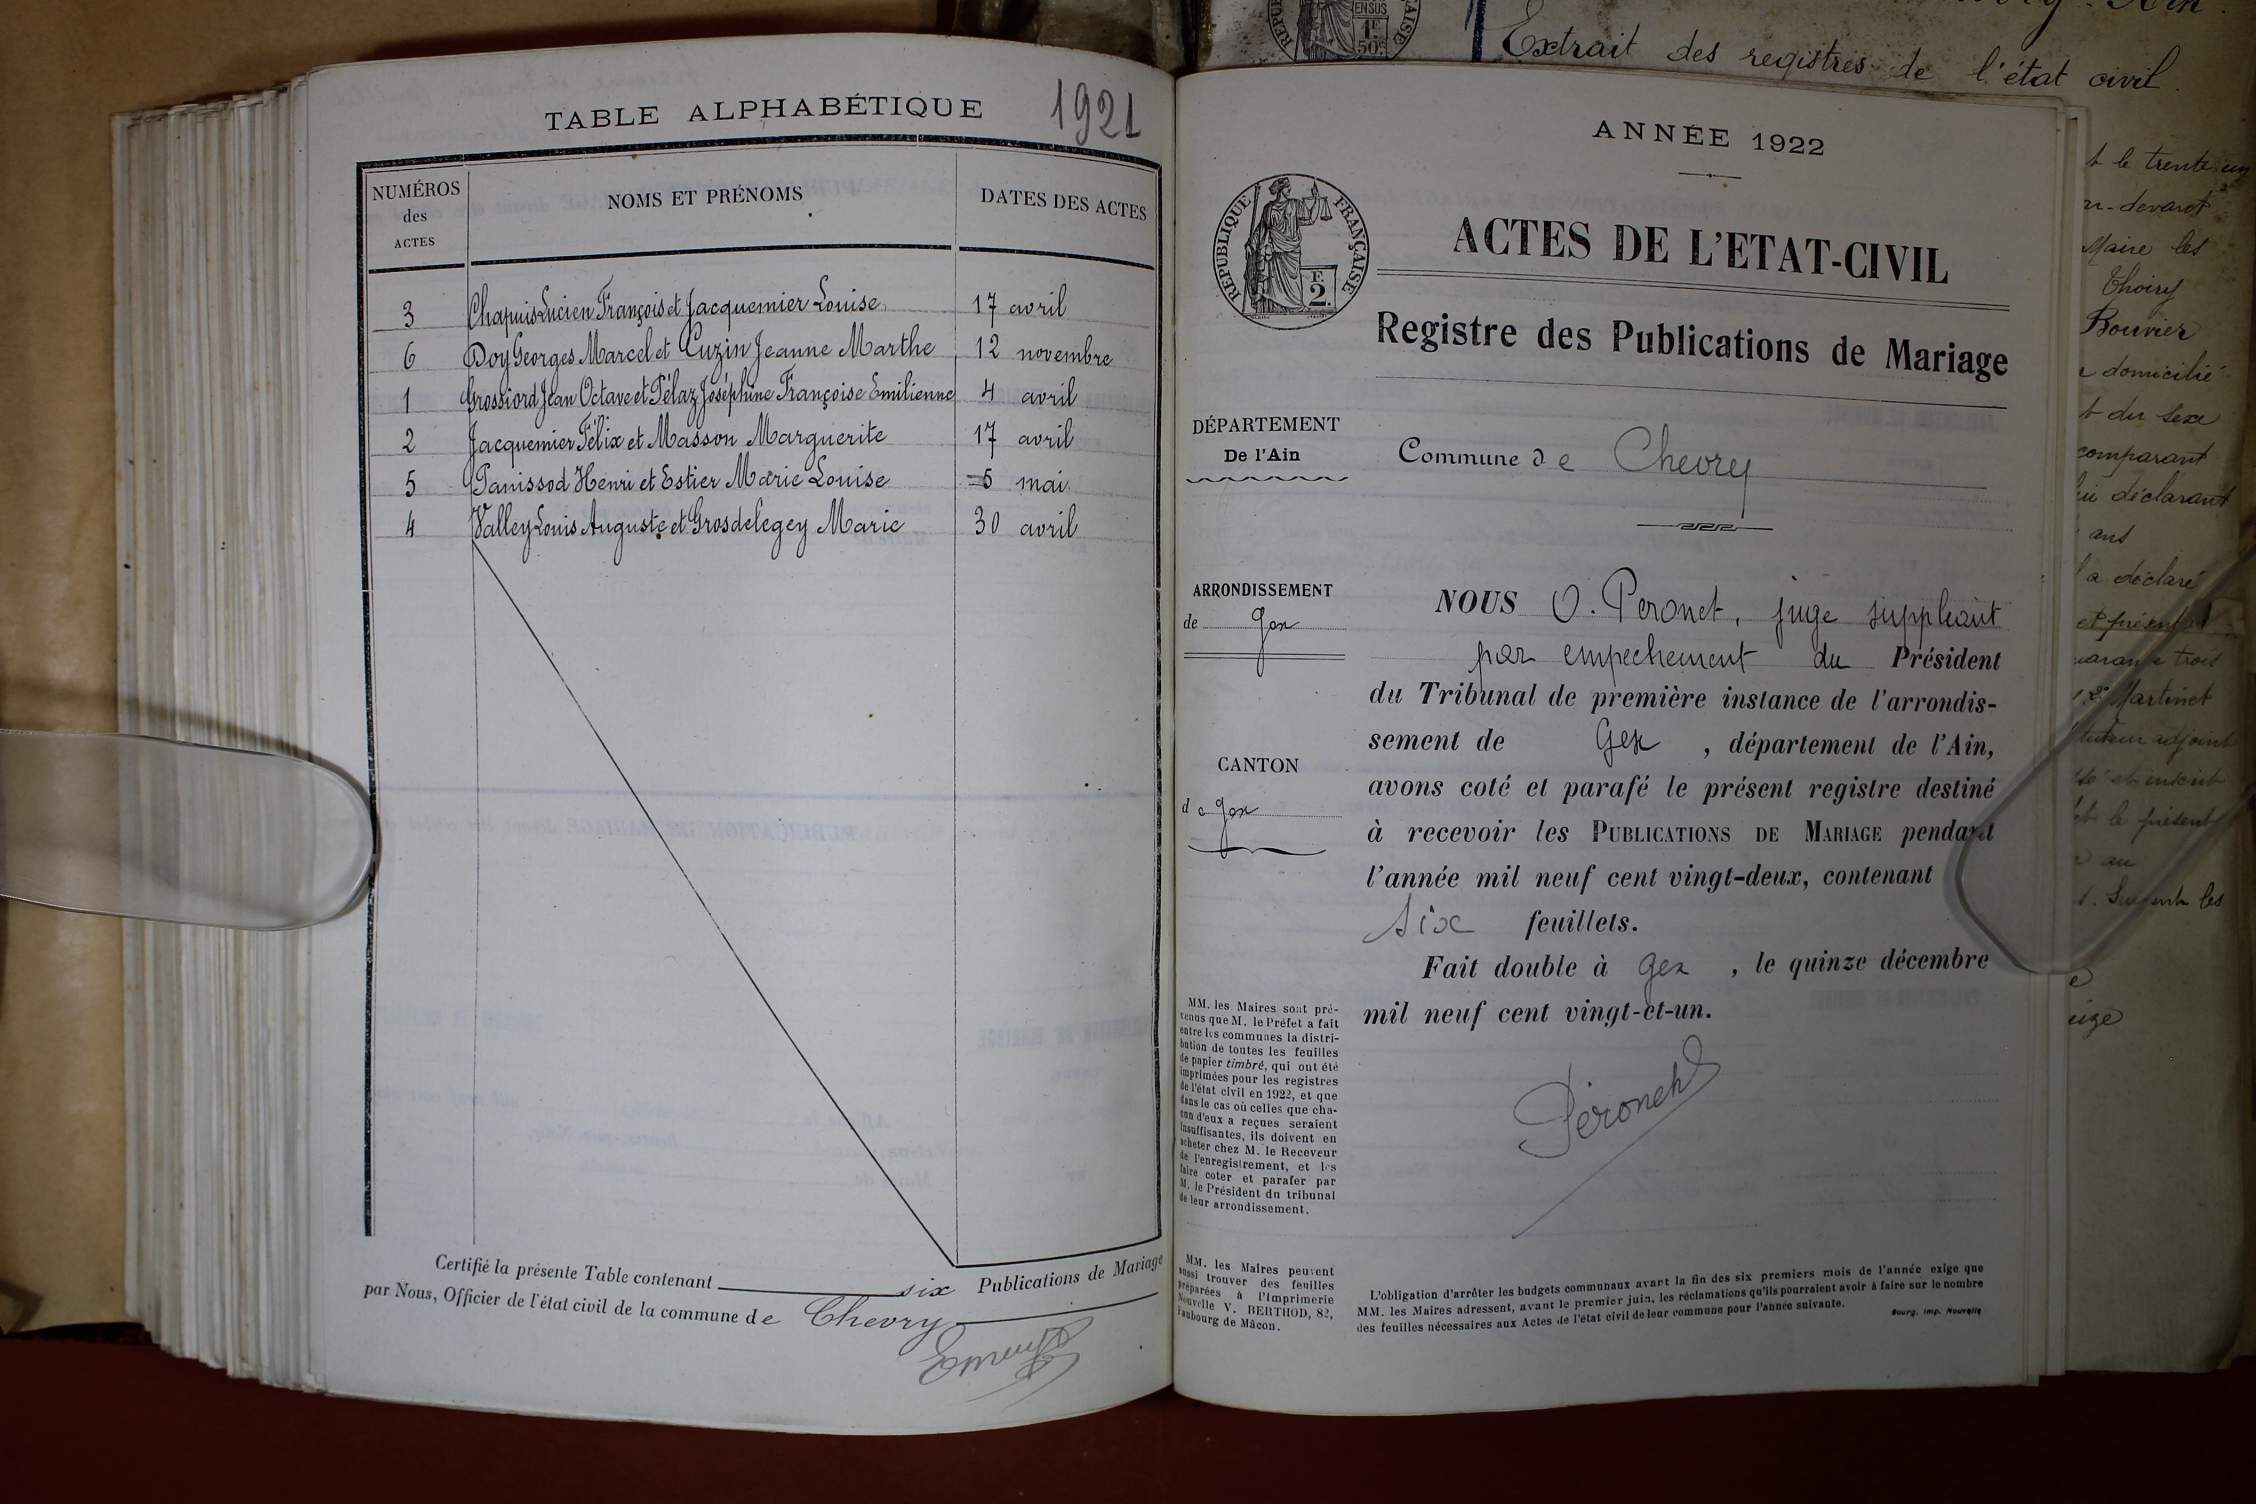 TABLE ALPHABÉTIQUE 1921
NUMÉROS
des
ACTES
NOMS ET PRÉNOMS
DATES DES ACTES
3 Chapuis Lucien François et Jacquemier Louise 17 avril
6 Doy Georges Marcel et Cuzin Jeanne Marthe 12 novembre
1 Grossiord Jean Octave et Pélaz Joséphine Françoise Emilienne 4 avril
2 Jacquemier Félix et Masson Marguerite 17 avril
5 Panissod Henri et Estier Marie Louise 5 mai
4 Valley Louis Auguste et Grosdelegey Marie 30 avril
Certifié la présente Table contenant six Publications de Mariage
par Nous, Officier de l'état civil de la commune de Chevry
ANNÉE 1922
RÉPUBLIQUE FRANÇAISE
F.
2.
ACTES DE L'ETAT-CIVIL
Registre des Publications de Mariage
DÉPARTEMENT
De l'Ain
Commune de Chevry
ARRONDISSEMENT
de Gex
CANTON
de Gex
NOUS O. Peronet, juge suppléant
par empechement du Président
du Tribunal de première instance de l'arrondis-
sement de Gex, département de l'Ain,
avons coté et parafé le présent registre destiné
à recevoir les PUBLICATIONS DE MARIAGE pendant
l'année mil neuf cent vingt-deux, contenant
six feuillets.
Fait double à Gex, le quinze décembre
mil neuf cent vingt-et-un.
Péronet
MM. les Maires sont pré-
venus que M. le Préfet a fait
entre les communes la distri-
bution de toutes les feuilles
de papier timbré, qui ont été
imprimées pour les registres
de l'état civil en 1922, et que
dans le cas où celles que cha-
cun d'eux a reçues seraient
insuffisantes, ils doivent en
acheter chez M. le Receveur
de l'enregistrement, et les
faire coter et parafer par
M. le Président du tribunal
de leur arrondissement.
MM. les Maires peuvent
aussi trouver des feuilles
préparées à l'Imprimerie
Nouvelle V. BERTHOD, 82,
Faubourg de Mâcon.
L'obligation d'arrêter les budgets communaux avant la fin des six premiers mois de l'année exige que
MM. les Maires adressent, avant le premier juin, les réclamations qu'ils pourraient avoir à faire sur le nombre
des feuilles nécessaires aux Actes de l'état civil de leur commune pour l'année suivante.
Bourg, imp. Nouvelle
Extrait des registres de l'état civil.
t le trente un
devant
Maire les
Thoiry
Bouvier
domicilié
t du sexe
comparant
lui déclarant
ans
a déclaré
et présent
trois
Martinet
adjoint
et inscrit
et le présent
au
les